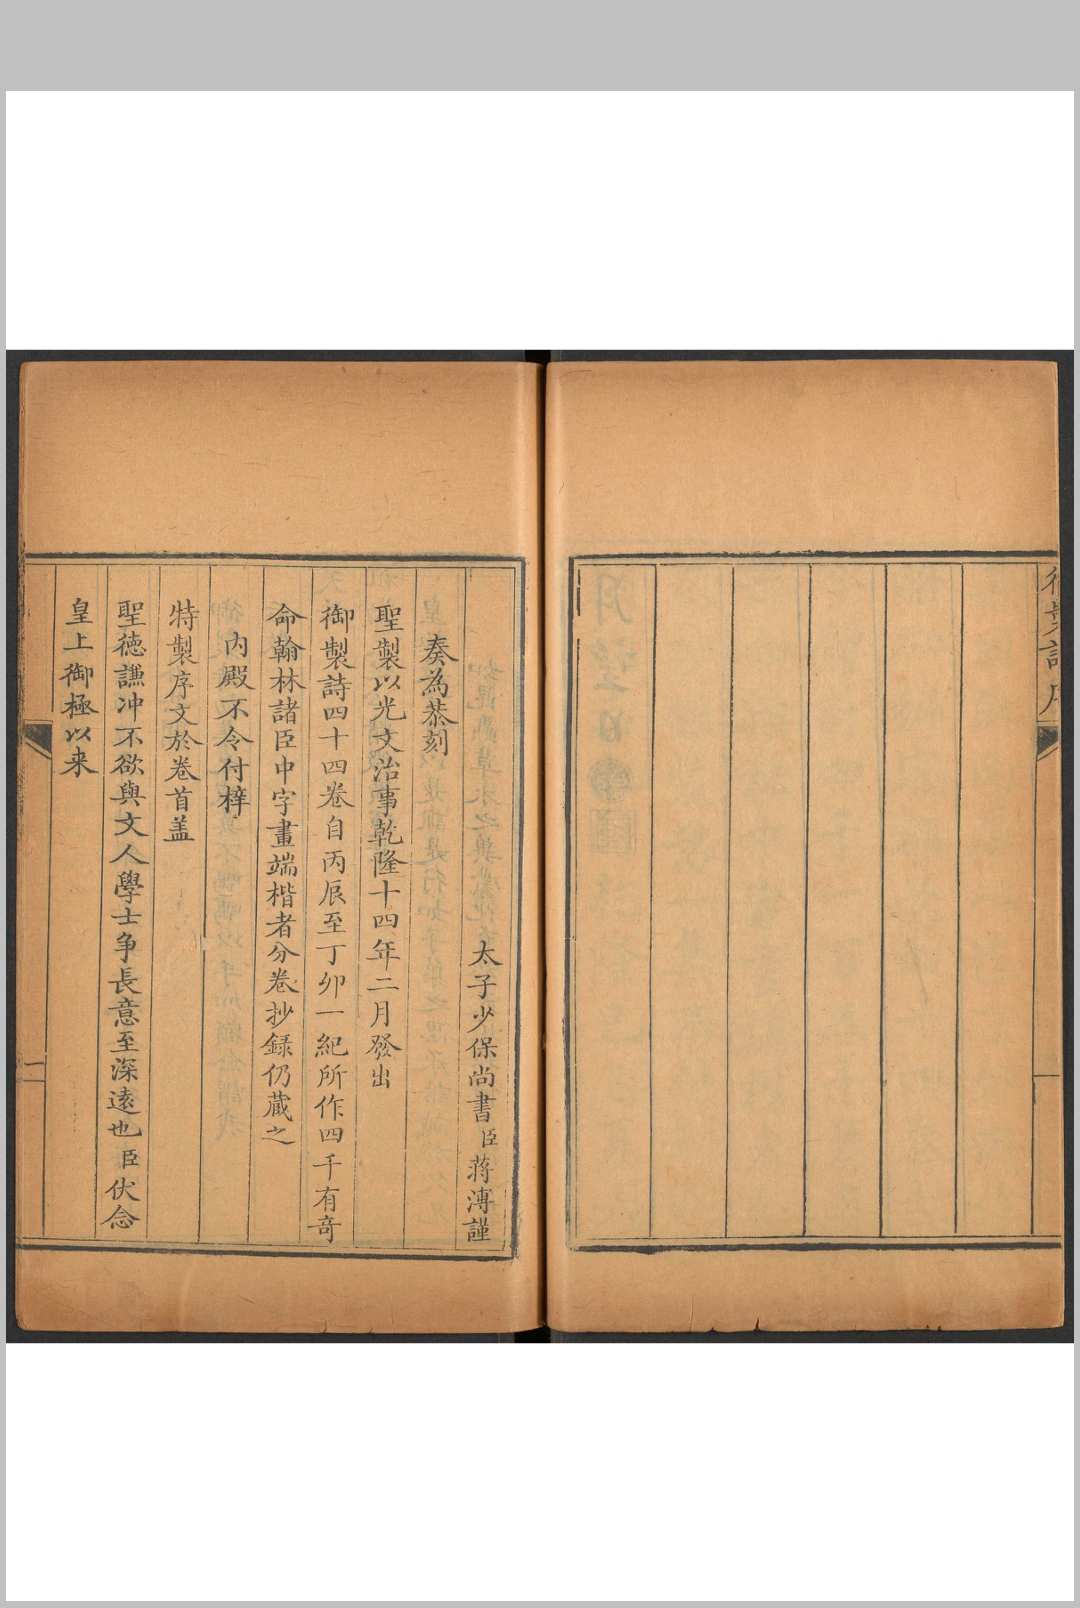 太子少保尚書臣蔣溥謹
奏為恭刻
聖製以光文治事乾隆十四年二月發出
御製詩四十四卷自丙辰至丁卯一紀所作四千有奇
命翰林諸臣中字畫端楷者分卷抄録仍藏之
内殿不令付梓
特製序文於卷首盖
聖德謙冲不欲與文人學士争長意至深遠也臣伏念
皇上御極以来
二